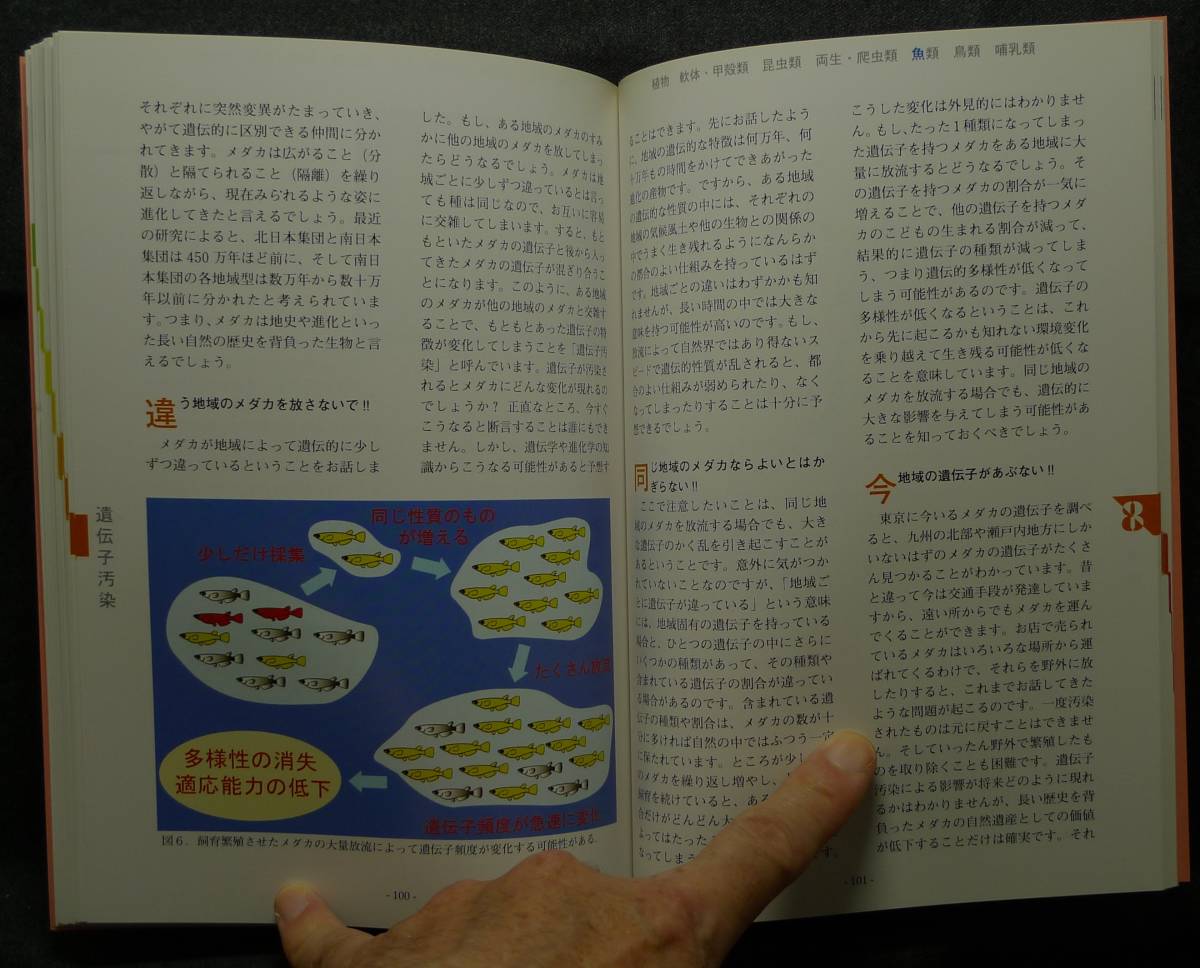 それぞれに突然変異がたまっていき、
やがて遺伝的に区別できる仲間に分か
れてきます。メダカは広がること（分
散）と隔てられること（隔離）を繰り
返しながら、現在みられるような姿に
進化してきたと言えるでしょう。最近
の研究によると、北日本集団と南日本
集団は 450 万年ほど前に、そして南日
本集団の各地域型は数万年から数十万
年以前に分かれたと考えられていま
す。つまり、メダカは地史や進化といっ
た長い自然の歴史を背負った生物と言
えるでしょう。
違う地域のメダカを放さないで!!
メダカが地域によって遺伝的に少し
ずつ違っているということをお話しま
した。もし、ある地域のメダカのすみ
かに他の地域のメダカを放してしまっ
たらどうなるでしょう。メダカは地
域ごとに少しずつ違っているとは言っ
ても種は同じなので、お互いに容易
に交雑してしまいます。すると、もと
もといたメダカの遺伝子と後から入っ
てきたメダカの遺伝子が混ざり合うこ
とになります。このように、ある地域
のメダカが他の地域のメダカと交雑す
ることで、もともとあった遺伝子の特
徴が変化してしまうことを「遺伝子汚
染」と呼んでいます。遺伝子が汚染さ
れるとメダカにどんな変化が現れるの
でしょうか？ 正直なところ、今すぐ
こうなると断言することは誰にもでき
ません。しかし、遺伝学や進化学の知
識からこうなる可能性があると予想す
遺伝子汚染
少しだけ採集
同じ性質のもの
が増える
たくさん放流
遺伝子頻度が急速に変化
多様性の消失
適応能力の低下
図６．飼育繁殖させたメダカの大量放流によって遺伝子頻度が変化する可能性がある.
- 100 -
植物 軟体・甲殻類 昆虫類 両生・爬虫類 魚類 鳥類 哺乳類
ることはできます。先にお話したよう
に、地域の遺伝的な特徴は何万年、何
十万年もの時間をかけてできあがった
進化の産物です。ですから、ある地域
の遺伝的な性質の中には、それぞれの
地域の気候風土や他の生物との関係の
中でうまく生き残れるようになんらか
の都合のよい仕組みを持っているはず
です。地域ごとの違いはわずかかも知
れませんが、長い時間の中では大きな
意味を持つ可能性が高いのです。もし、
放流によって自然界ではあり得ないス
ピードで遺伝的性質が乱されると、都
合のよい仕組みが弱められたり、なく
なってしまったりすることは十分に予
想できるでしょう。
同じ地域のメダカならよいとはか
ぎらない!!
ここで注意したいことは、同じ地
域のメダカを放流する場合でも、大き
な遺伝子のかく乱を引き起こすことが
あるということです。意外に気がつか
れていないことなのですが、「地域ご
とに遺伝子が違っている」という意味
には、地域固有の遺伝子を持っている
場合と、ひとつの遺伝子の中にさらに
いくつかの種類があって、その種類や
含まれている遺伝子の割合が違ってい
る場合があるのです。含まれている遺
伝子の種類や割合は、メダカの数が十
分に多ければ自然の中ではふつう一定
に保たれています。ところが少し
のメダカを繰り返し増やし、
飼育を続けていると、ある
合だけがどんどん大
よってはたった
なってしまう です。
こうした変化は外見的にはわかりませ
ん。もし、たった１種類になってしまっ
た遺伝子を持つメダカをある地域に大
量に放流するとどうなるでしょう。そ
の遺伝子を持つメダカの割合が一気に
増えることで、他の遺伝子を持つメダ
カのこどもの生まれる割合が減って、
結果的に遺伝子の種類が減ってしま
う、つまり遺伝的多様性が低くなって
しまう可能性があるのです。遺伝子の
多様性が低くなるということは、これ
から先に起こるかも知れない環境変化
を乗り越えて生き残る可能性が低くな
ることを意味しています。同じ地域の
メダカを放流する場合でも、遺伝的に
大きな影響を与えてしまう可能性があ
ることを知っておくべきでしょう。
今地域の遺伝子があぶない!!
東京に今いるメダカの遺伝子を調べ
ると、九州の北部や瀬戸内地方にしか
いないはずのメダカの遺伝子がたくさ
ん見つかることがわかっています。昔
と違って今は交通手段が発達していま
すから、遠い所からでもメダカを運ん
でくることができます。お店で売られ
ているメダカはいろいろな場所から運
ばれてくるわけで、それらを野外に放
したりすると、これまでお話してきた
ような問題が起こるのです。一度汚染
されたものは元に戻すことはできませ
ん。そしていったん野外で繁殖したも
のを取り除くことも困難です。遺伝子
汚染による影響が将来どのように現れ
るかはわかりませんが、長い歴史を背
負ったメダカの自然遺産としての価値
が低下することだけは確実です。それ
8
- 101 -